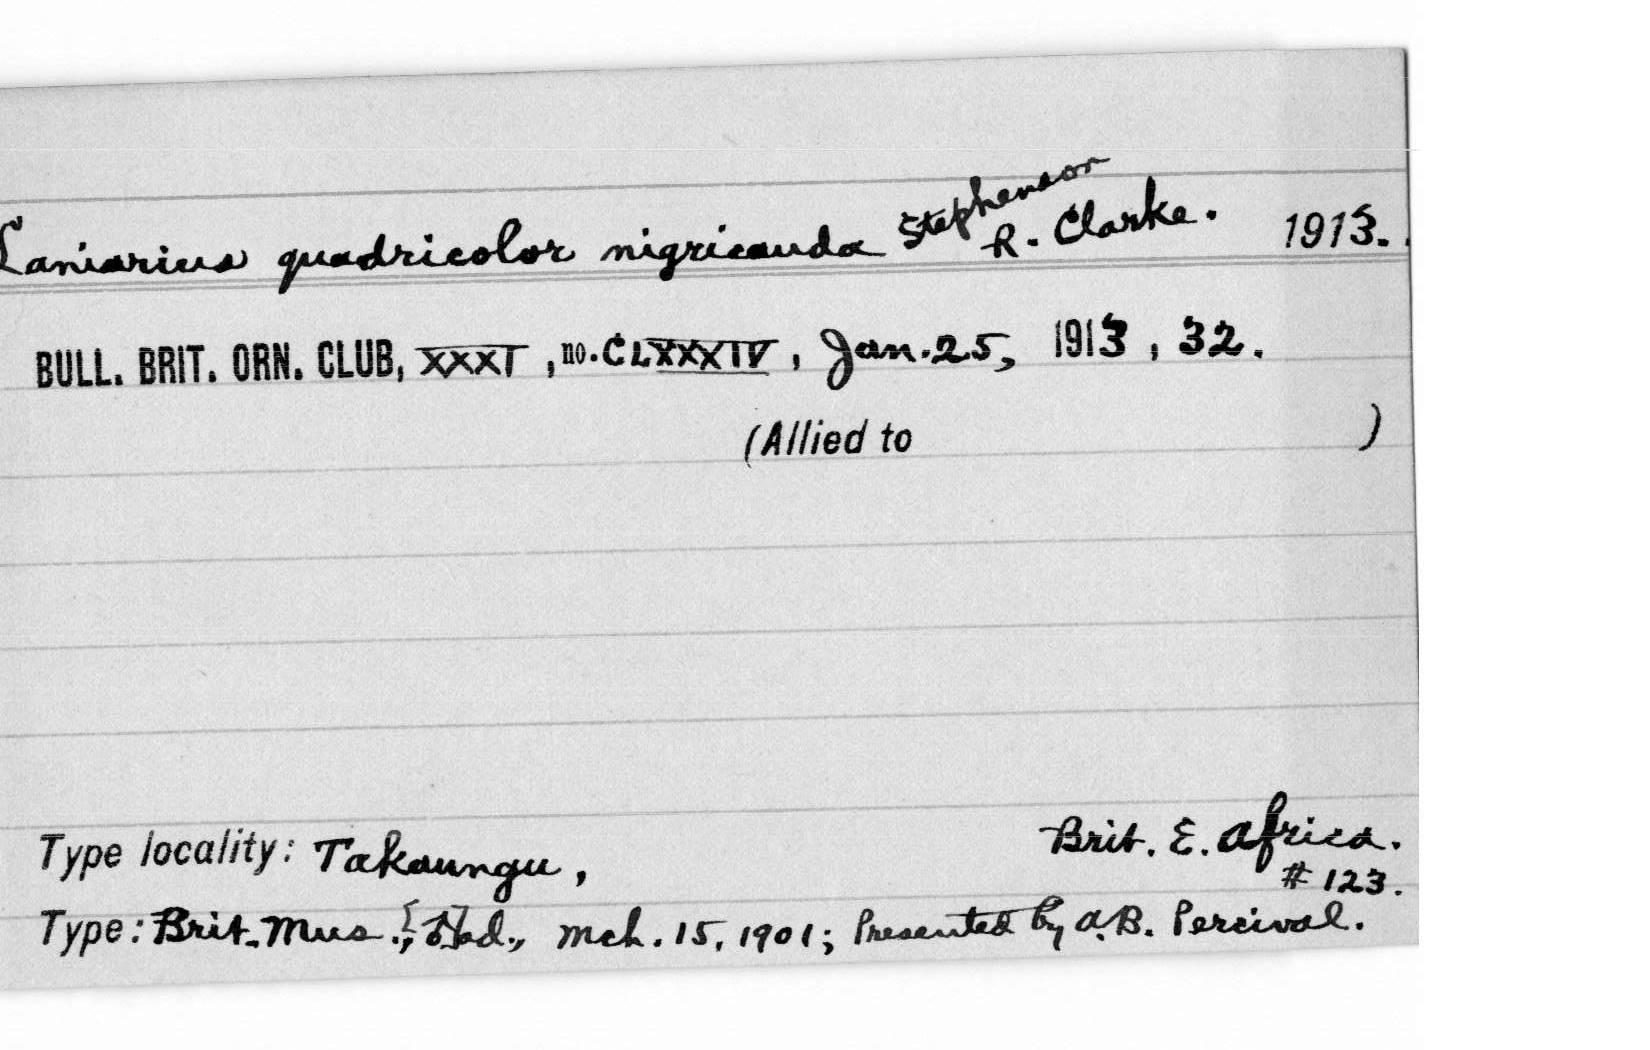 Laniarius quadricolor nigricauda Stephenson R. Clarke. 1913.
BULL. BRIT. ORN. CLUB, XXXI, no. CLXXXIV, Jan. 25, 1913, 32.
(Allied to )
Type locality: Takaungu, Brit. E. Africa.
# 123.
Type: Brit. Mus.; ad., Mch. 15, 1901; Presented by A.B. Percival.